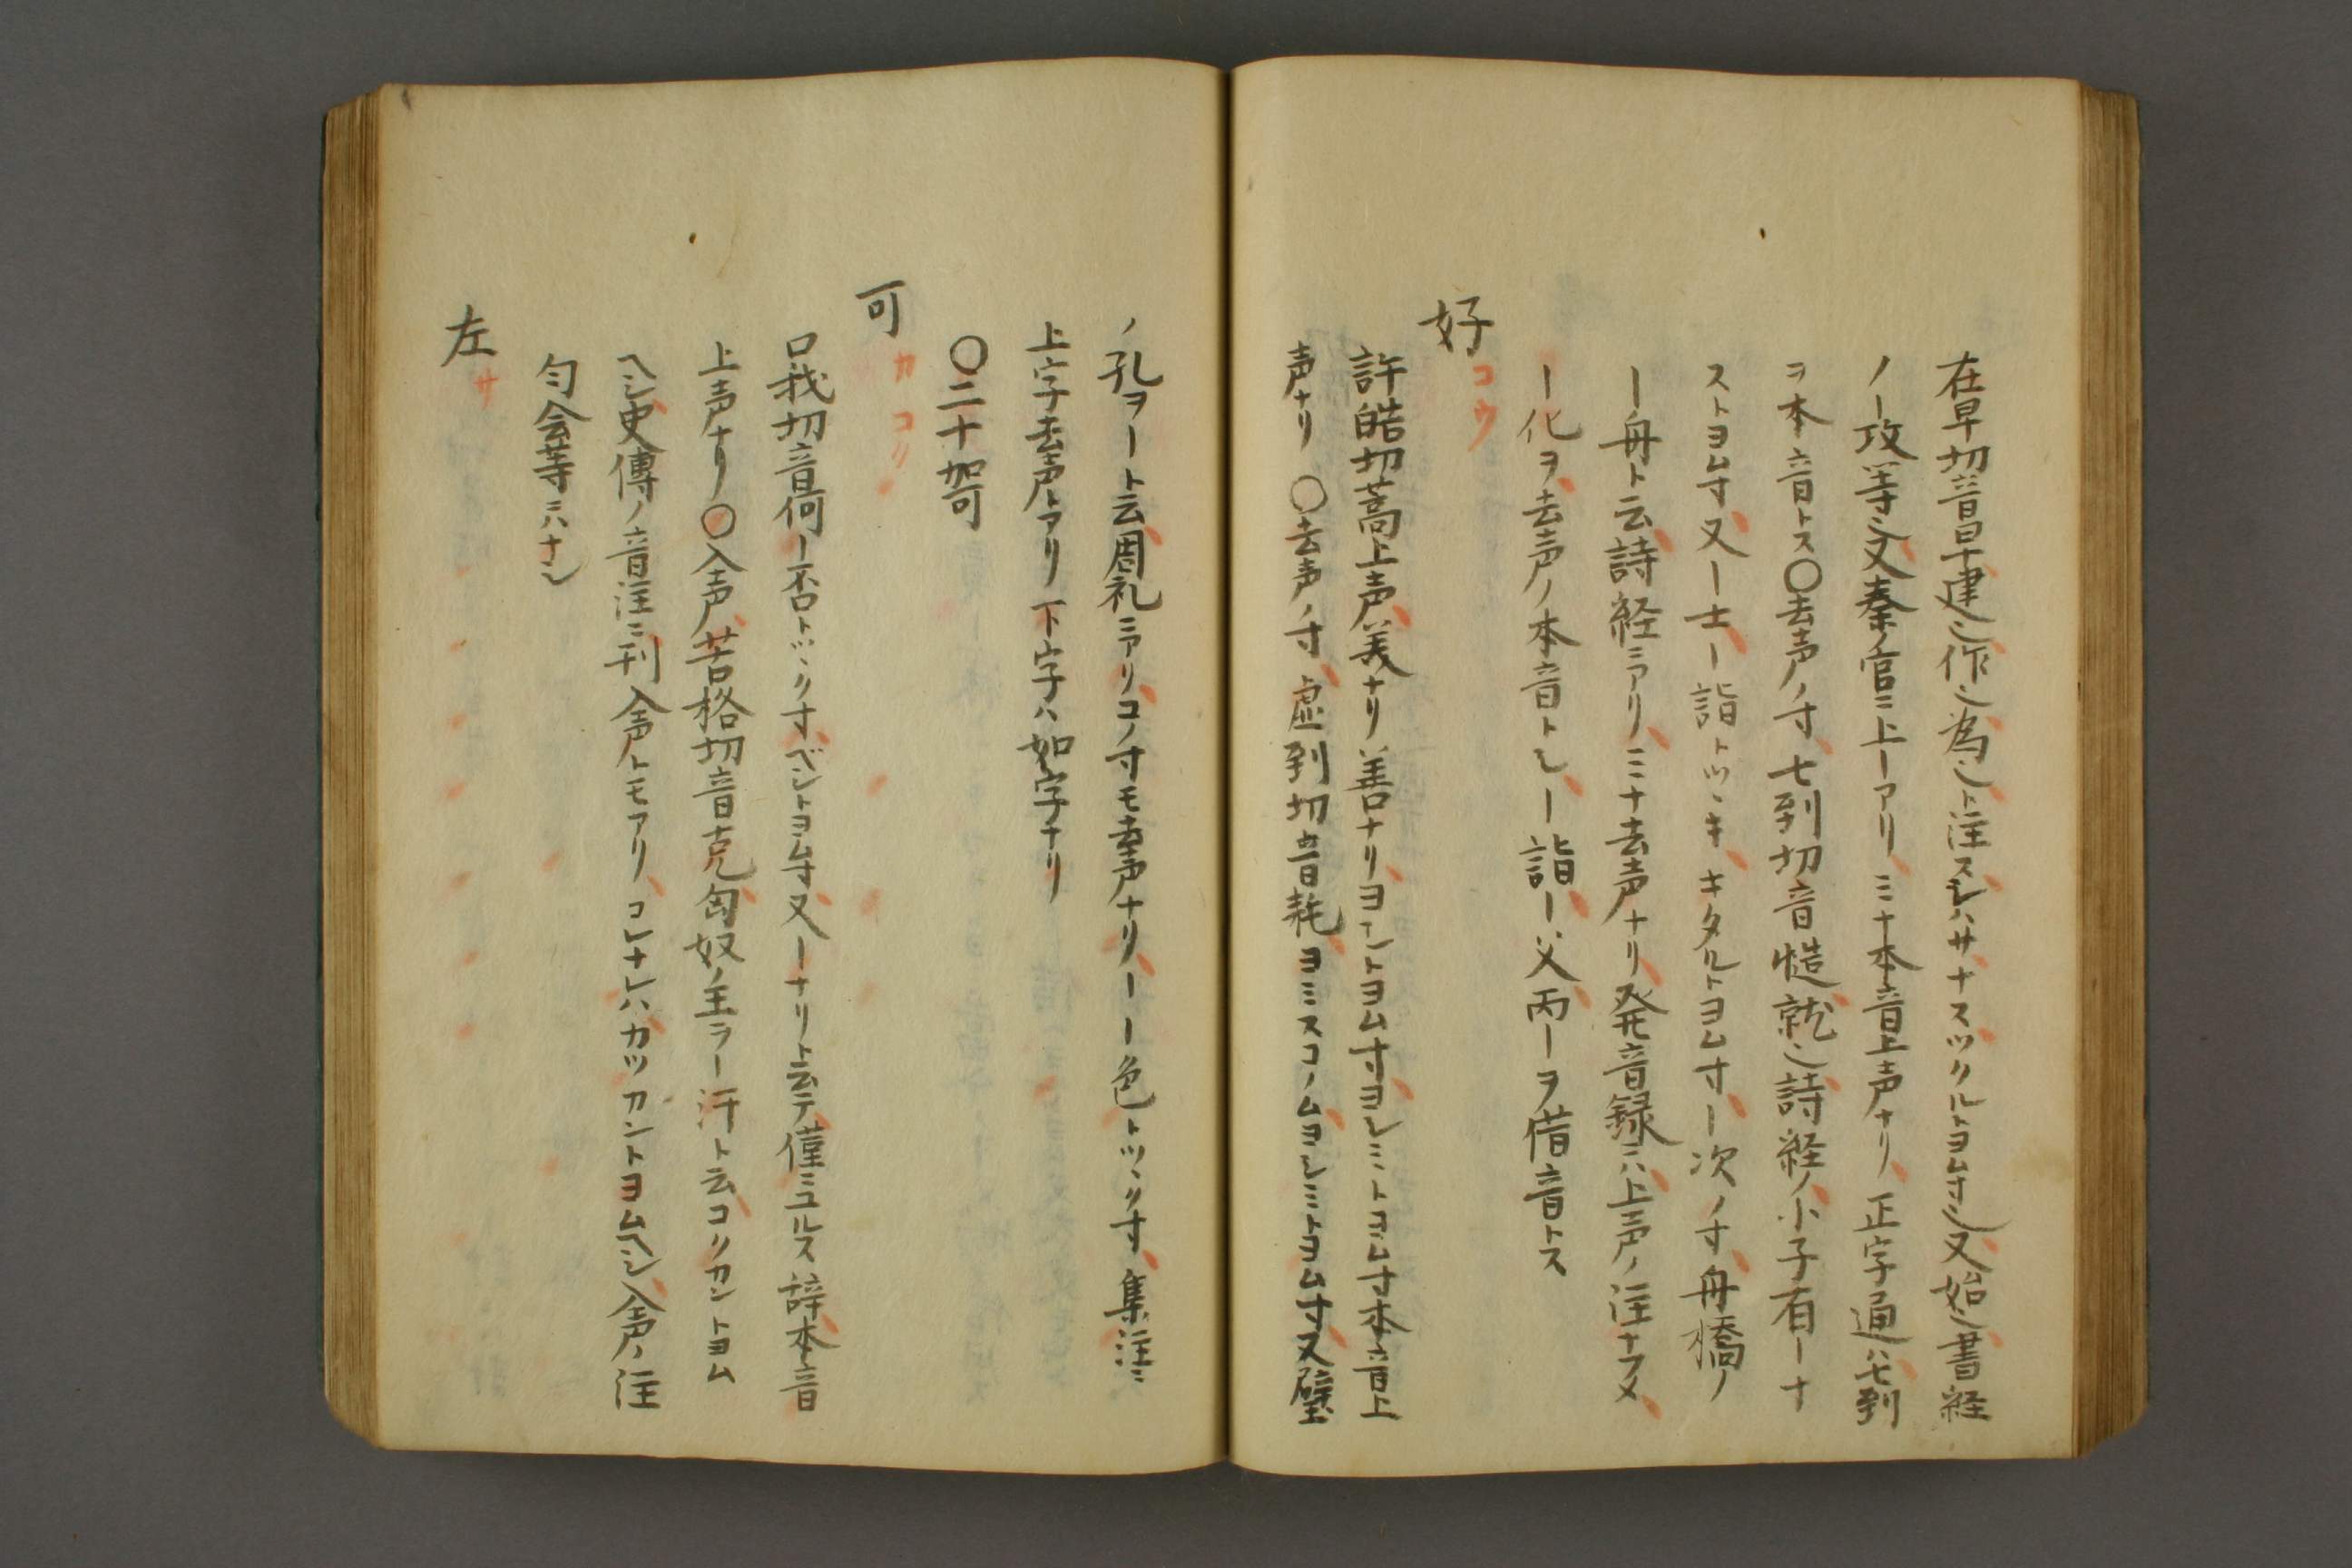 在早切音皁建也作也為也ト注スレハサナスツクルトヨム寸也又始也書経
ノ｜攻等也又秦ノ官ニ上｜アリミナ本音上声ナリ正字通ハ七到
ヲ本音トス〇去声ノ寸七到切音慥就也詩経ノ小子有｜ナ
ストヨム寸又｜士｜詣トツヽキキタルトヨム寸｜次ノ寸舟橋ノ
｜舟ト云詩経ニアリミナ去声ナリ発音録ニハ上声ノ注ナフメ
｜化ヲ去声ノ本音トシ｜詣｜父丙｜ヲ借音トス
好 コウ
許皓切蒿上声美ナリ善ナリヨシトヨム寸ヨシミトヨム寸本音上
声ナリ 〇去声ノ寸虚到切音耗ヨミスコノムヨシミトヨム寸又璧
ノ孔ヲ｜ト云周礼ニアリコノ寸モ去声ナリ｜｜色トツヽク寸集注ニ
上字去声トアリ下字ハ如字ナリ
〇二十哿
可 カ コク
口我切音何｜否トツヽク寸ベシトヨム寸又｜ナリト云テ僅ニユルス辞本音
上声ナリ〇入声苦格切音克匈奴ノ主ヲ｜汗ト云コクカントヨム
ヘシ史傳ノ音注ニ刊入声トモアリコレナレハカツカントヨムヘシ入声ノ注
匀会等ニハナシ
左 サ